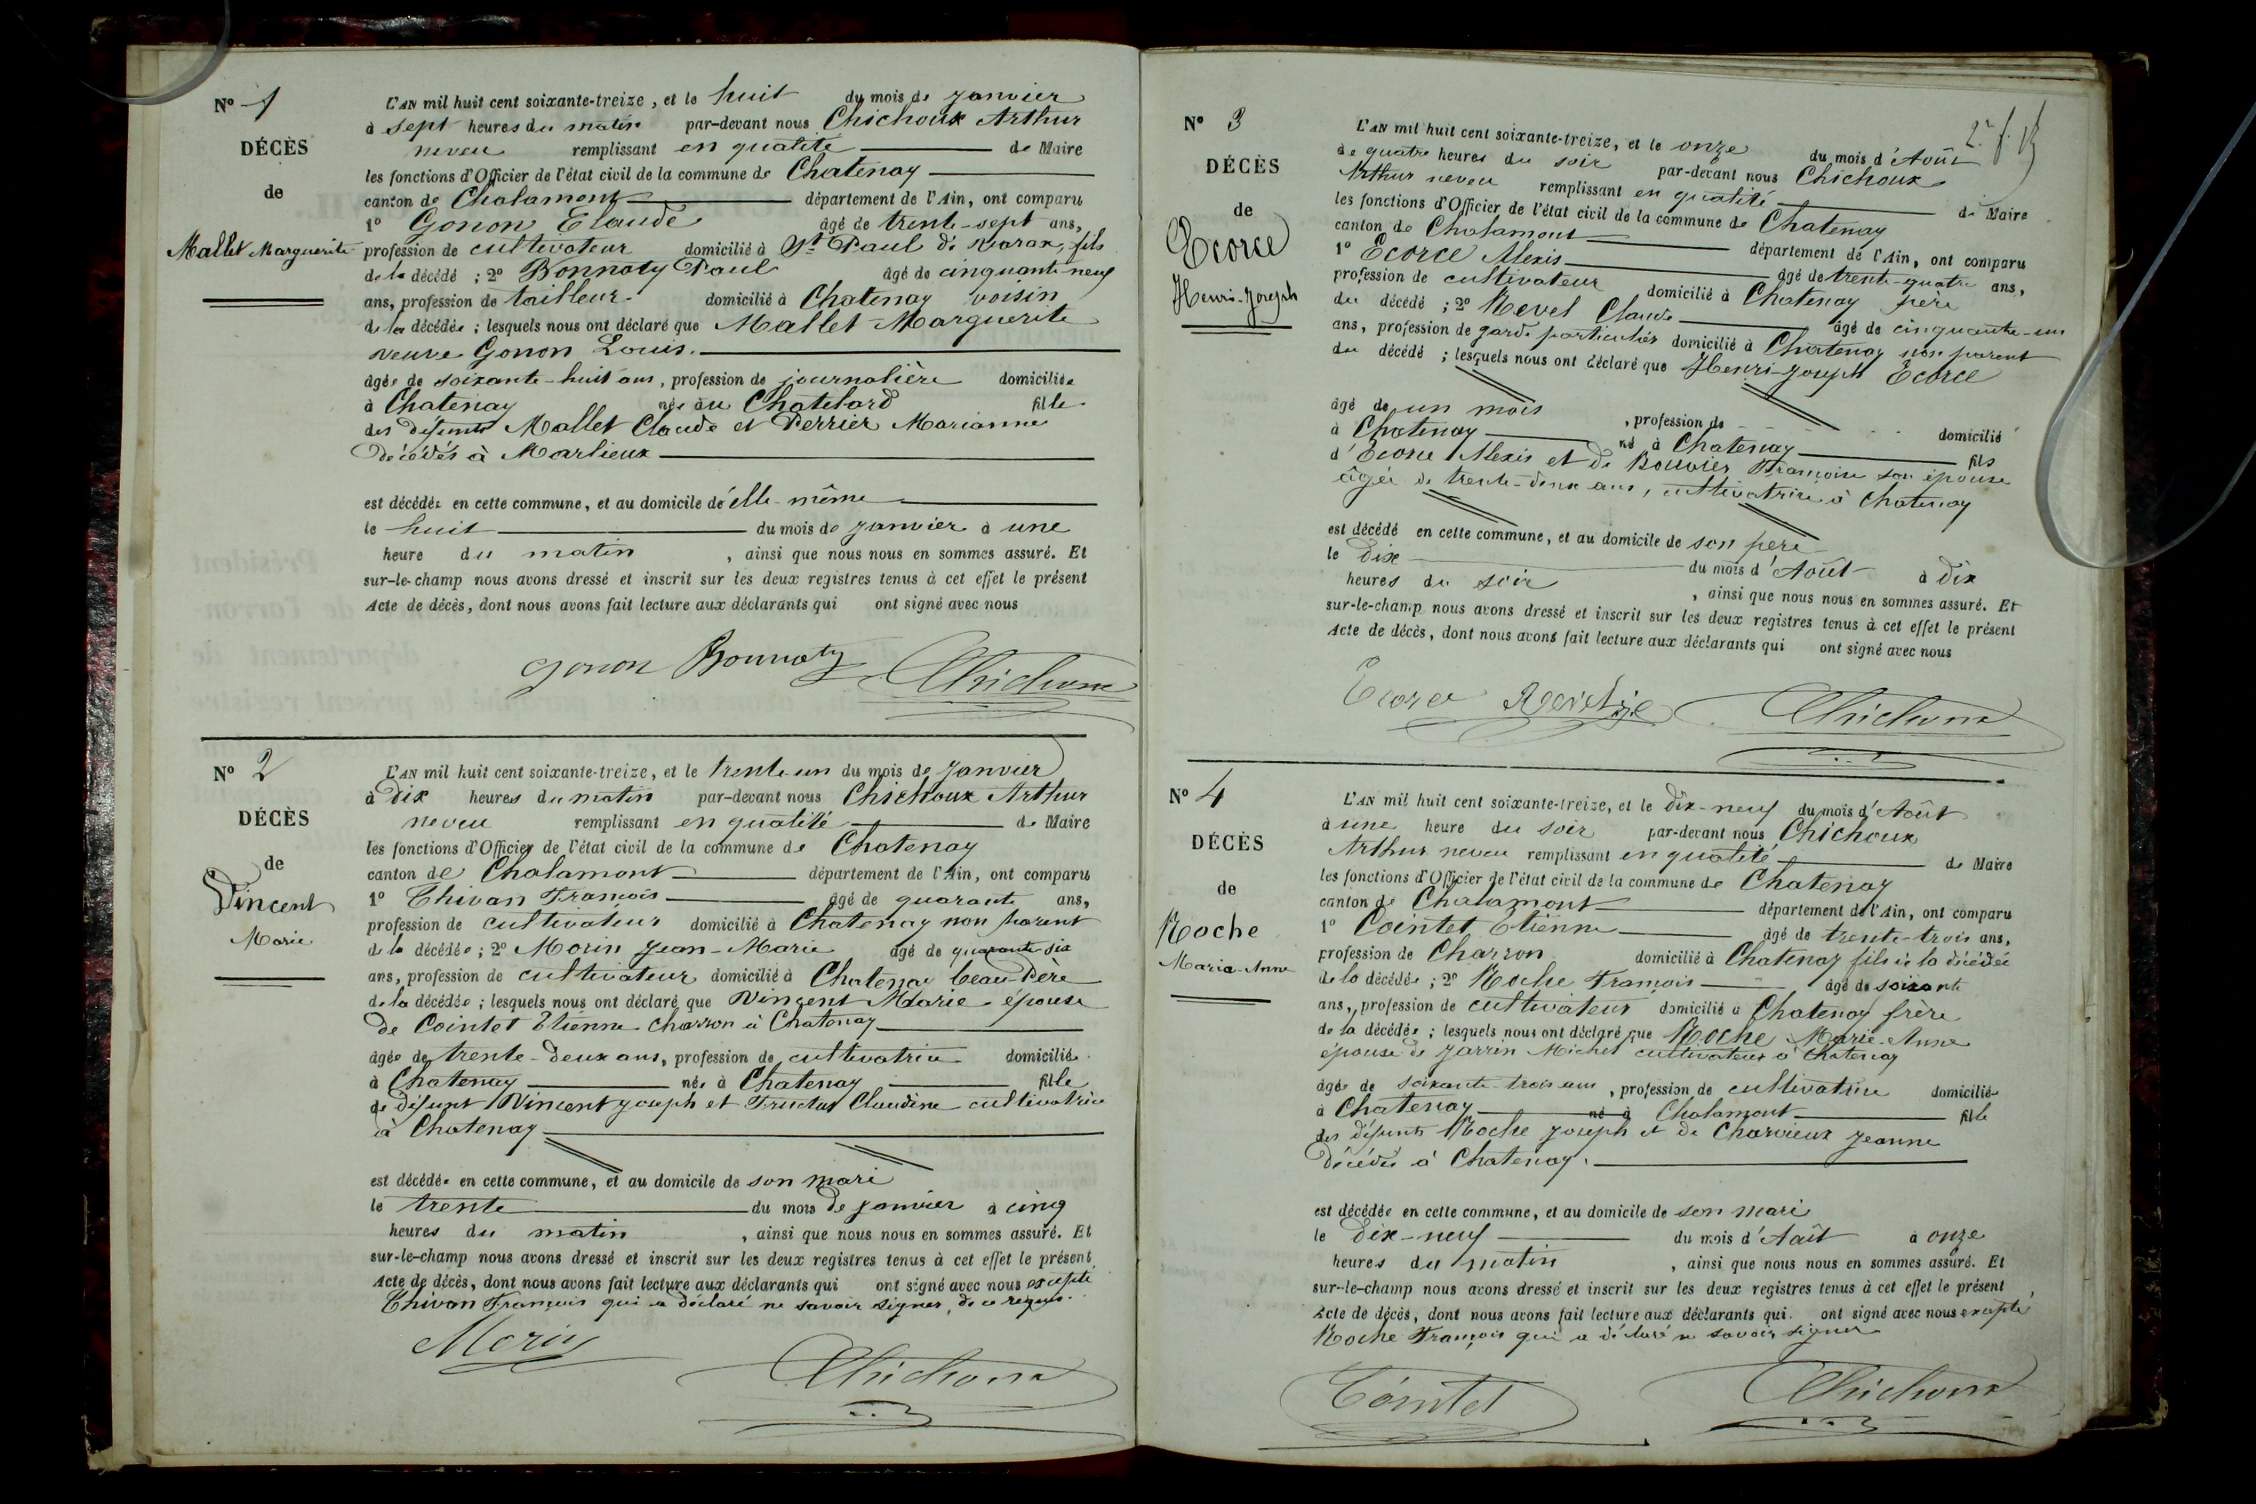 N° 1
DÉCÈS
de
Mallet Marguerite
L'AN mil huit cent soixante-treize, et le huit du mois de Janvier
à sept heures du matin par-devant nous Chichoux Arthur
neveu remplissant en qualité de Maire
les fonctions d'Officier de l'état civil de la commune de Chatenay
canton de Chalamont département de l'Ain, ont comparu
1° Gonon Claude âgé de trente-sept ans,
profession de cultivateur domicilié à St Paul de Varax, fils
de la décédé ; 2° Bonnaty Paul âgé de cinquante neuf
ans, profession de tailleur domicilié à Chatenay voisin
de la décédée ; lesquels nous ont déclaré que Mallet Marguerite
veuve Gonon Louis.
âgée de soixante-huit ans, profession de journalière domiciliée
à Chatenay née au Chatelard fille
des défunts Mallet Claude et Perrier Marianne
décédés à Marlieux
est décédée en cette commune, et au domicile de elle-même
le huit du mois de Janvier à une
heure du matin, ainsi que nous nous en sommes assuré. Et
sur-le-champ nous avons dressé et inscrit sur les deux registres tenus à cet effet le présent
Acte de décès, dont nous avons fait lecture aux déclarants qui ont signé avec nous
gonon Bonnaty Chichoux
N° 2
DÉCÈS
de
Vincent
Marie
L'AN mil huit cent soixante-treize, et le trente-un du mois de Janvier
à dix heures du matin par-devant nous Chichoux Arthur
neveu remplissant en qualité de Maire
les fonctions d'Officier de l'état civil de la commune de Chatenay
canton de Chalamont département de l'Ain, ont comparu
1° Thivan François âgé de quarante ans,
profession de cultivateur domicilié à Chatenay non parent
de la décédée ; 2° Morin Jean-Marie âgé de quarante six
ans, profession de cultivateur domicilié à Chatenay beau-Père
de la décédée ; lesquels nous ont déclaré que Vincent Marie épouse
de Cointet Etienne charron à Chatenay
âgée de trente-deux ans, profession de cultivatrice domiciliée
à Chatenay née à Chatenay fille
de défunt Vincent Joseph et Fructus Claudine cultivatrice
à Chatenay
est décédée en cette commune, et au domicile de son mari
le trente du mois de janvier à cinq
heures du matin, ainsi que nous nous en sommes assuré. Et
sur-le-champ nous avons dressé et inscrit sur les deux registres tenus à cet effet le présent
Acte de décès, dont nous avons fait lecture aux déclarants qui ont signé avec nous excepté
Thivan François qui a déclaré ne savoir signer, de ce requis.
Morin Chichoux
2e f.
N° 3
DÉCÈS
de
Ecorce
Henri-Joseph
L'AN mil huit cent soixante-treize, et le onze du mois d'Août
à quatre heures du soir par-devant nous Chichoux
Arthur neveu remplissant en qualité de Maire
les fonctions d'Officier de l'état civil de la commune de Chatenay
canton de Chalamont département de l'Ain, ont comparu
1° Ecorce Alexis âgé de trente-quatre ans,
profession de cultivateur domicilié à Chatenay père
du décédé ; 2° Revel Claude âgé de cinquante-un
ans, profession de garde particulier domicilié à Chatenay non parent
du décédé ; lesquels nous ont déclaré que Henri-Joseph Ecorce
âgé de un mois, profession de domicilié
à Chatenay né à Chatenay fils
d'Ecorce Alexis et de Bouvier Françoise son épouse
âgée de trente-deux ans, cultivatrice à Chatenay
est décédé en cette commune, et au domicile de son père
le dix du mois d'Août à dix
heures du soir, ainsi que nous nous en sommes assuré. Et
sur-le-champ nous avons dressé et inscrit sur les deux registres tenus à cet effet le présent
Acte de décès, dont nous avons fait lecture aux déclarants qui ont signé avec nous
Ecorce Chichoux
N° 4
DÉCÈS
de
Roche
Marie-Anne
L'AN mil huit cent soixante-treize, et le dix-neuf du mois d'Août
à une heure du soir par-devant nous Chichoux
Arthur neveu remplissant en qualité de Maire
les fonctions d'Officier de l'état civil de la commune de Chatenay
canton de Chalamont département de l'Ain, ont comparu
1° Cointet Etienne âgé de trente-trois ans,
profession de Charron domicilié à Chatenay fils de la décédée
de la décédée ; 2° Roche François âgé de soixante
ans, profession de cultivateur domicilié à Chatenay frère
de la décédée ; lesquels nous ont déclaré que Roche Marie-Anne
épouse de Jarrin Michel cultivateur à Chatenay
âgée de soixante-trois ans, profession de cultivatrice domiciliée
à Chatenay né à Chalamont fille
des défunts Roche Joseph et de Charvieux Jeanne
décédés à Chatenay.
est décédée en cette commune, et au domicile de son mari
le dix-neuf du mois d'Août à onze
heures du matin, ainsi que nous nous en sommes assuré. Et
sur-le-champ nous avons dressé et inscrit sur les deux registres tenus à cet effet le présent
Acte de décès, dont nous avons fait lecture aux déclarants qui ont signé avec nous excepté
Roche François qui a déclaré ne savoir signer
Cointet Chichoux